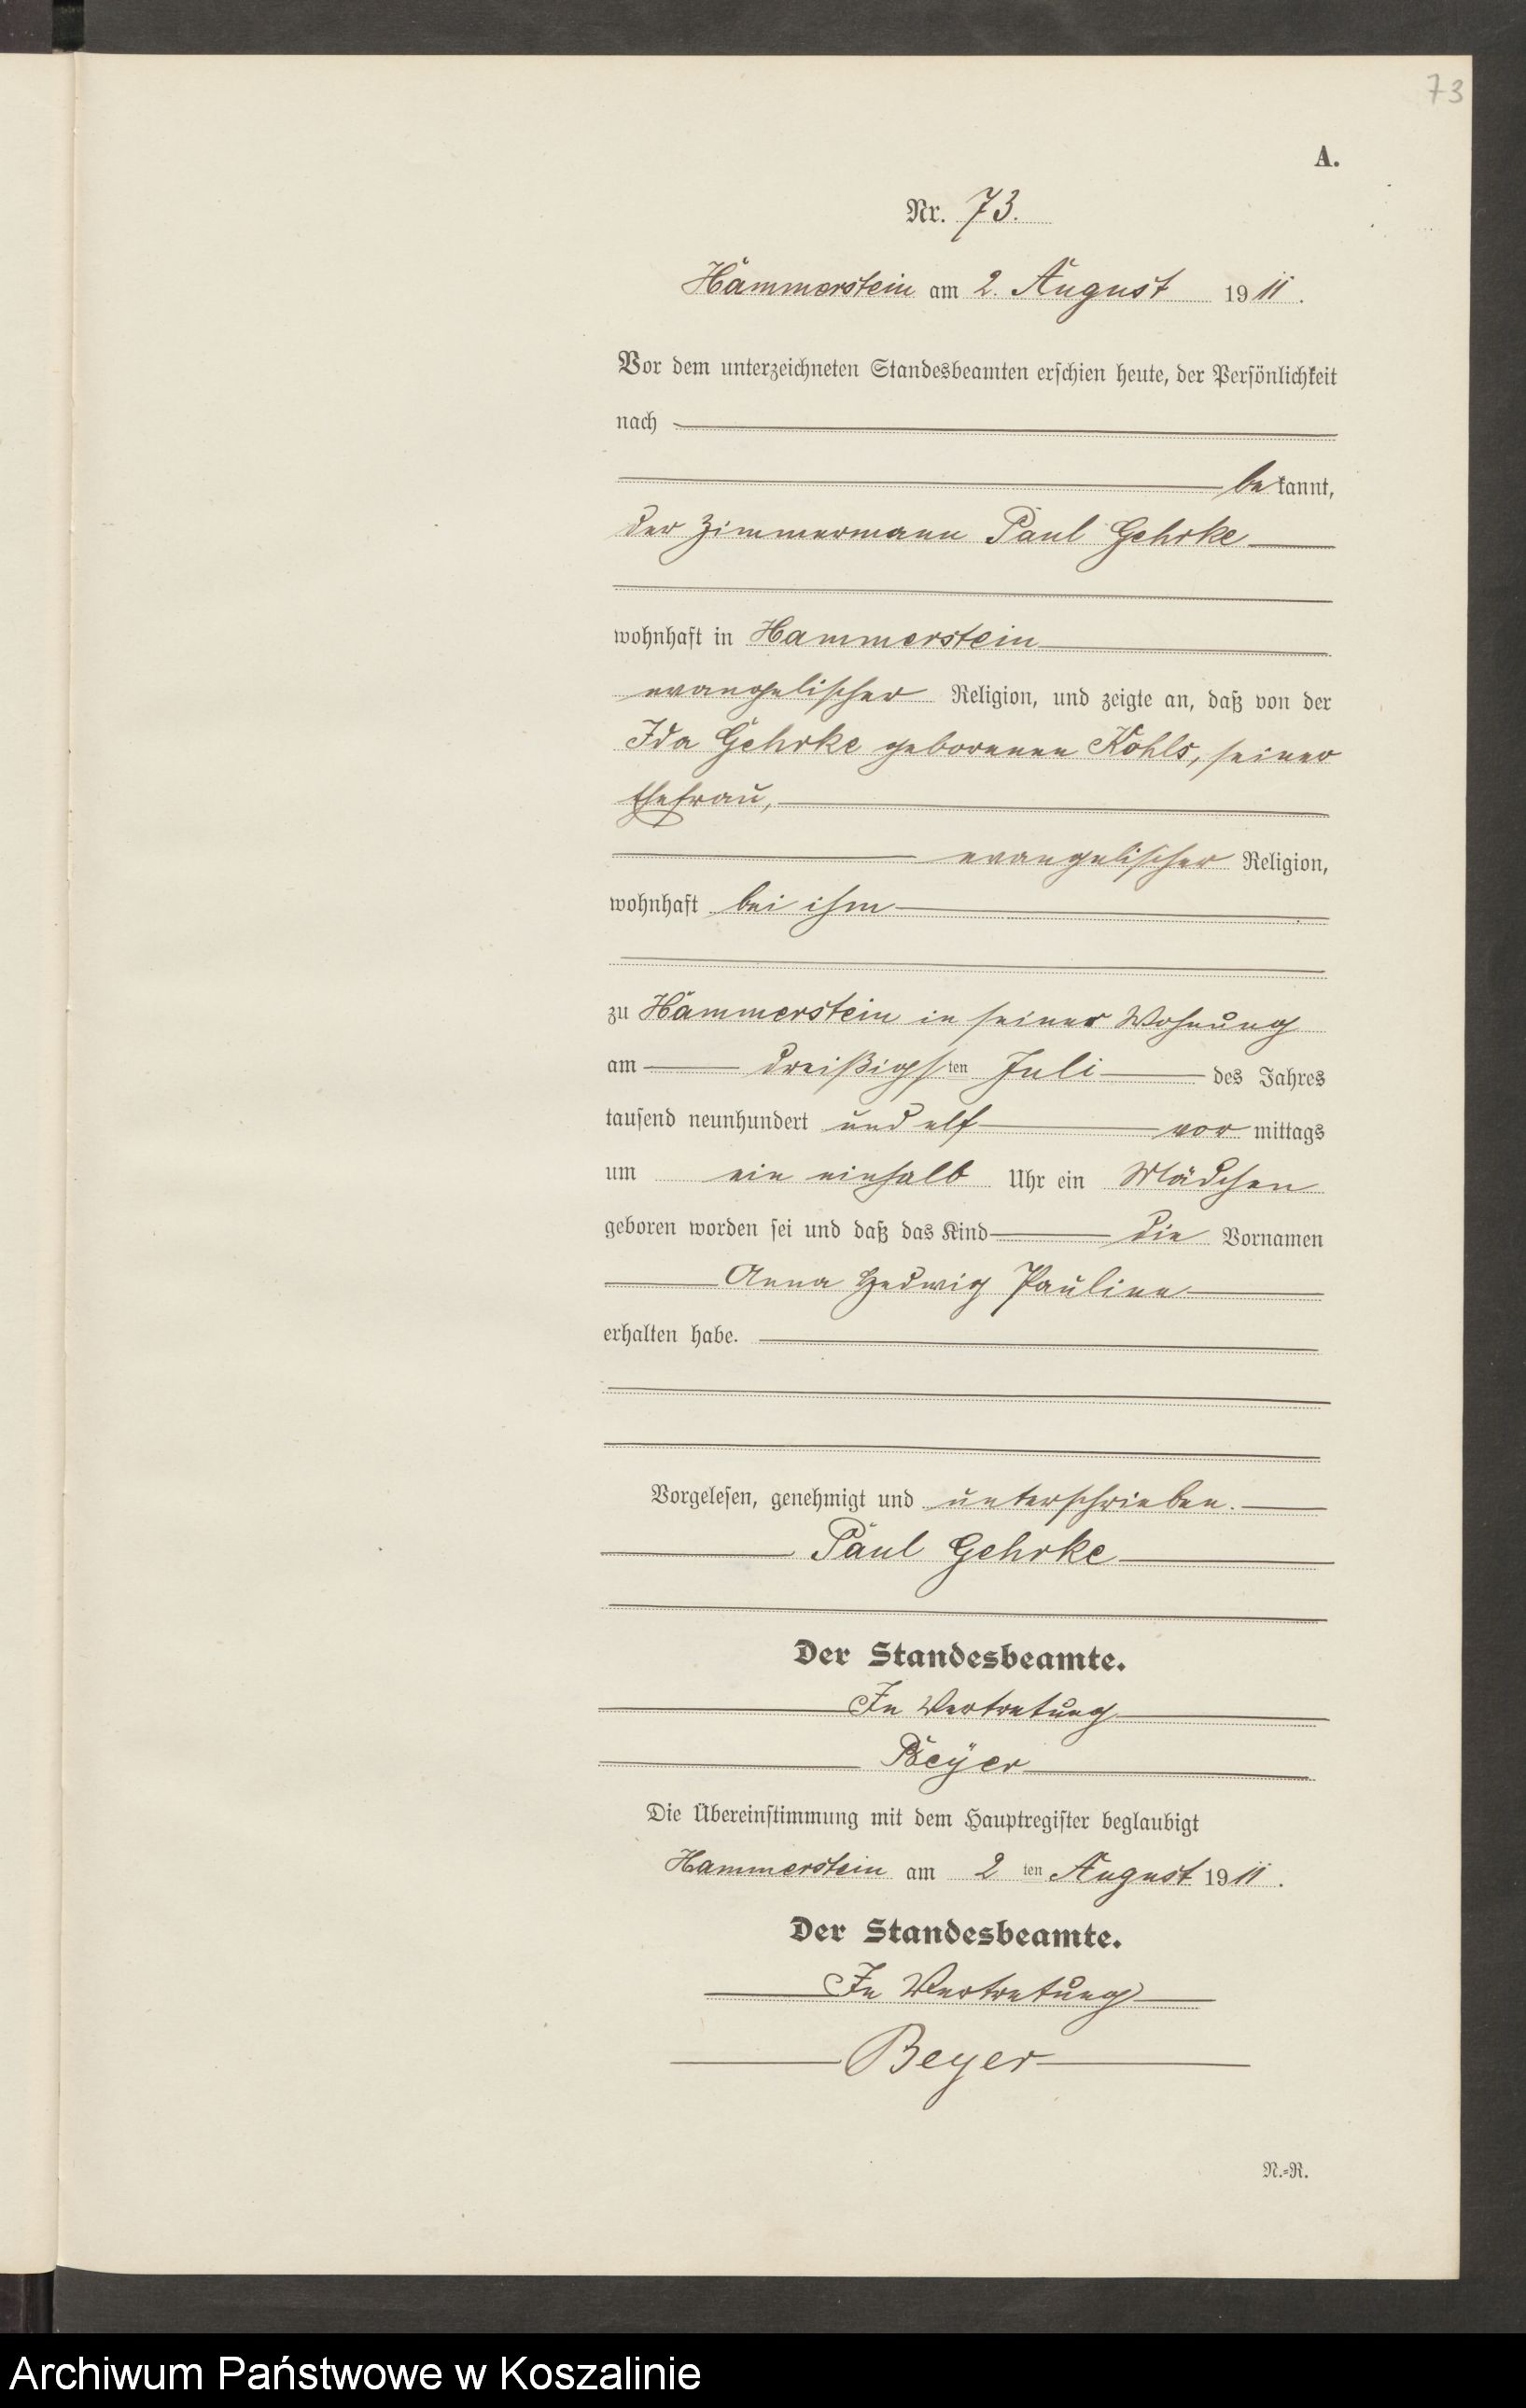 73
A.
Nr. 73.
Hammerstein am 2. August 1911.
Vor dem unterzeichneten Standesbeamten erschien heute, der Persönlichkeit
nach
bekannt,
der Zimmermann Paul Gehrke
wohnhaft in Hammerstein
evangelischer Religion, und zeigte an, daß von der
Ida Gehrke geborenen Kohls, seiner
Ehefrau,
evangelischer Religion,
wohnhaft bei ihm
zu Hammerstein in seiner Wohnung
am dreißigsten Juli des Jahres
tausend neunhundert und elf vor mittags
um ein einhalb Uhr ein Mädchen
geboren worden sei und daß das Kind die Vornamen
Anna Hedwig Pauline
erhalten habe.
Vorgelesen, genehmigt und unterschrieben.
Paul Gehrke
Der Standesbeamte.
In Vertretung
Beyer
Die Übereinstimmung mit dem Hauptregister beglaubigt
Hammerstein am 2 ten August 1911.
Der Standesbeamte.
In Vertretung
Beyer
N.=R.
Archiwum Państwowe w Koszalinie